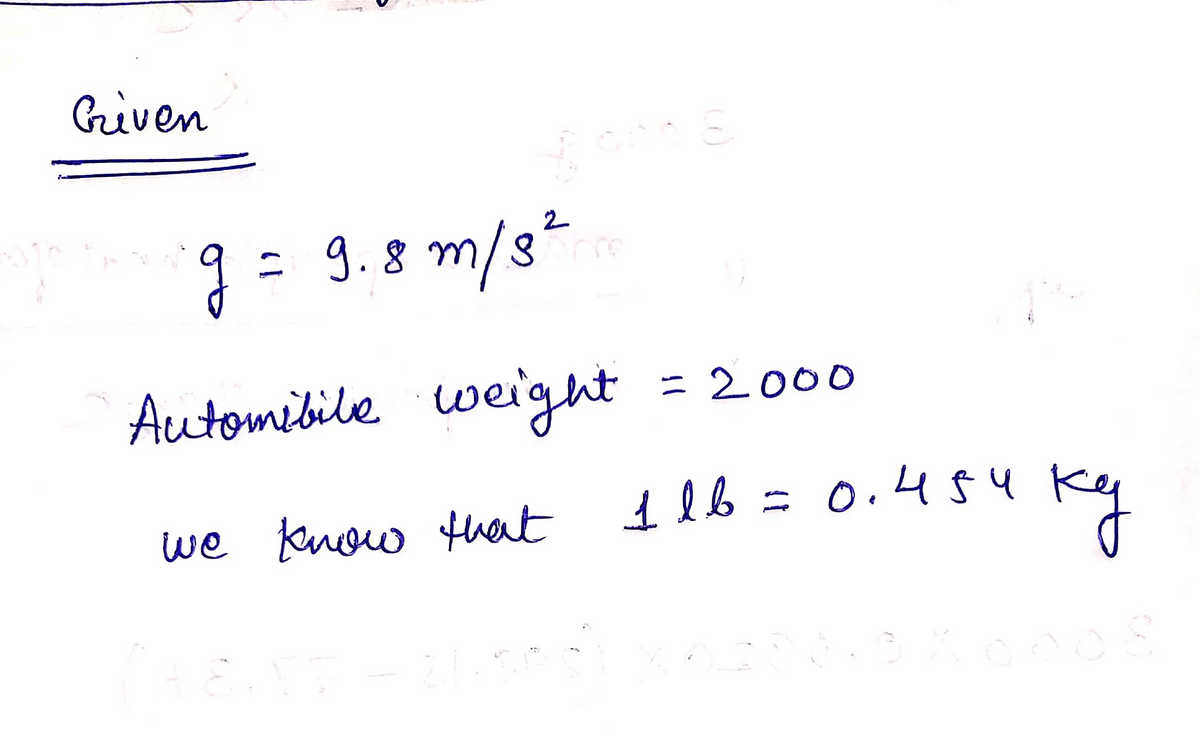 Given
g = 9.8 m/s²
Automibile weight = 2000
we know that 1 lb = 0.454 kg